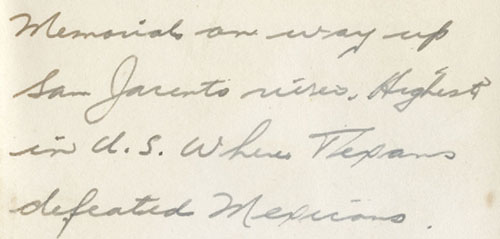 Memorial on way up
San Jacento river. Highest
in U.S. Where Texans
defeated Mexicans.